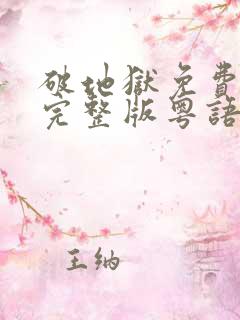 破地獄免費
完整版粵語
王纳